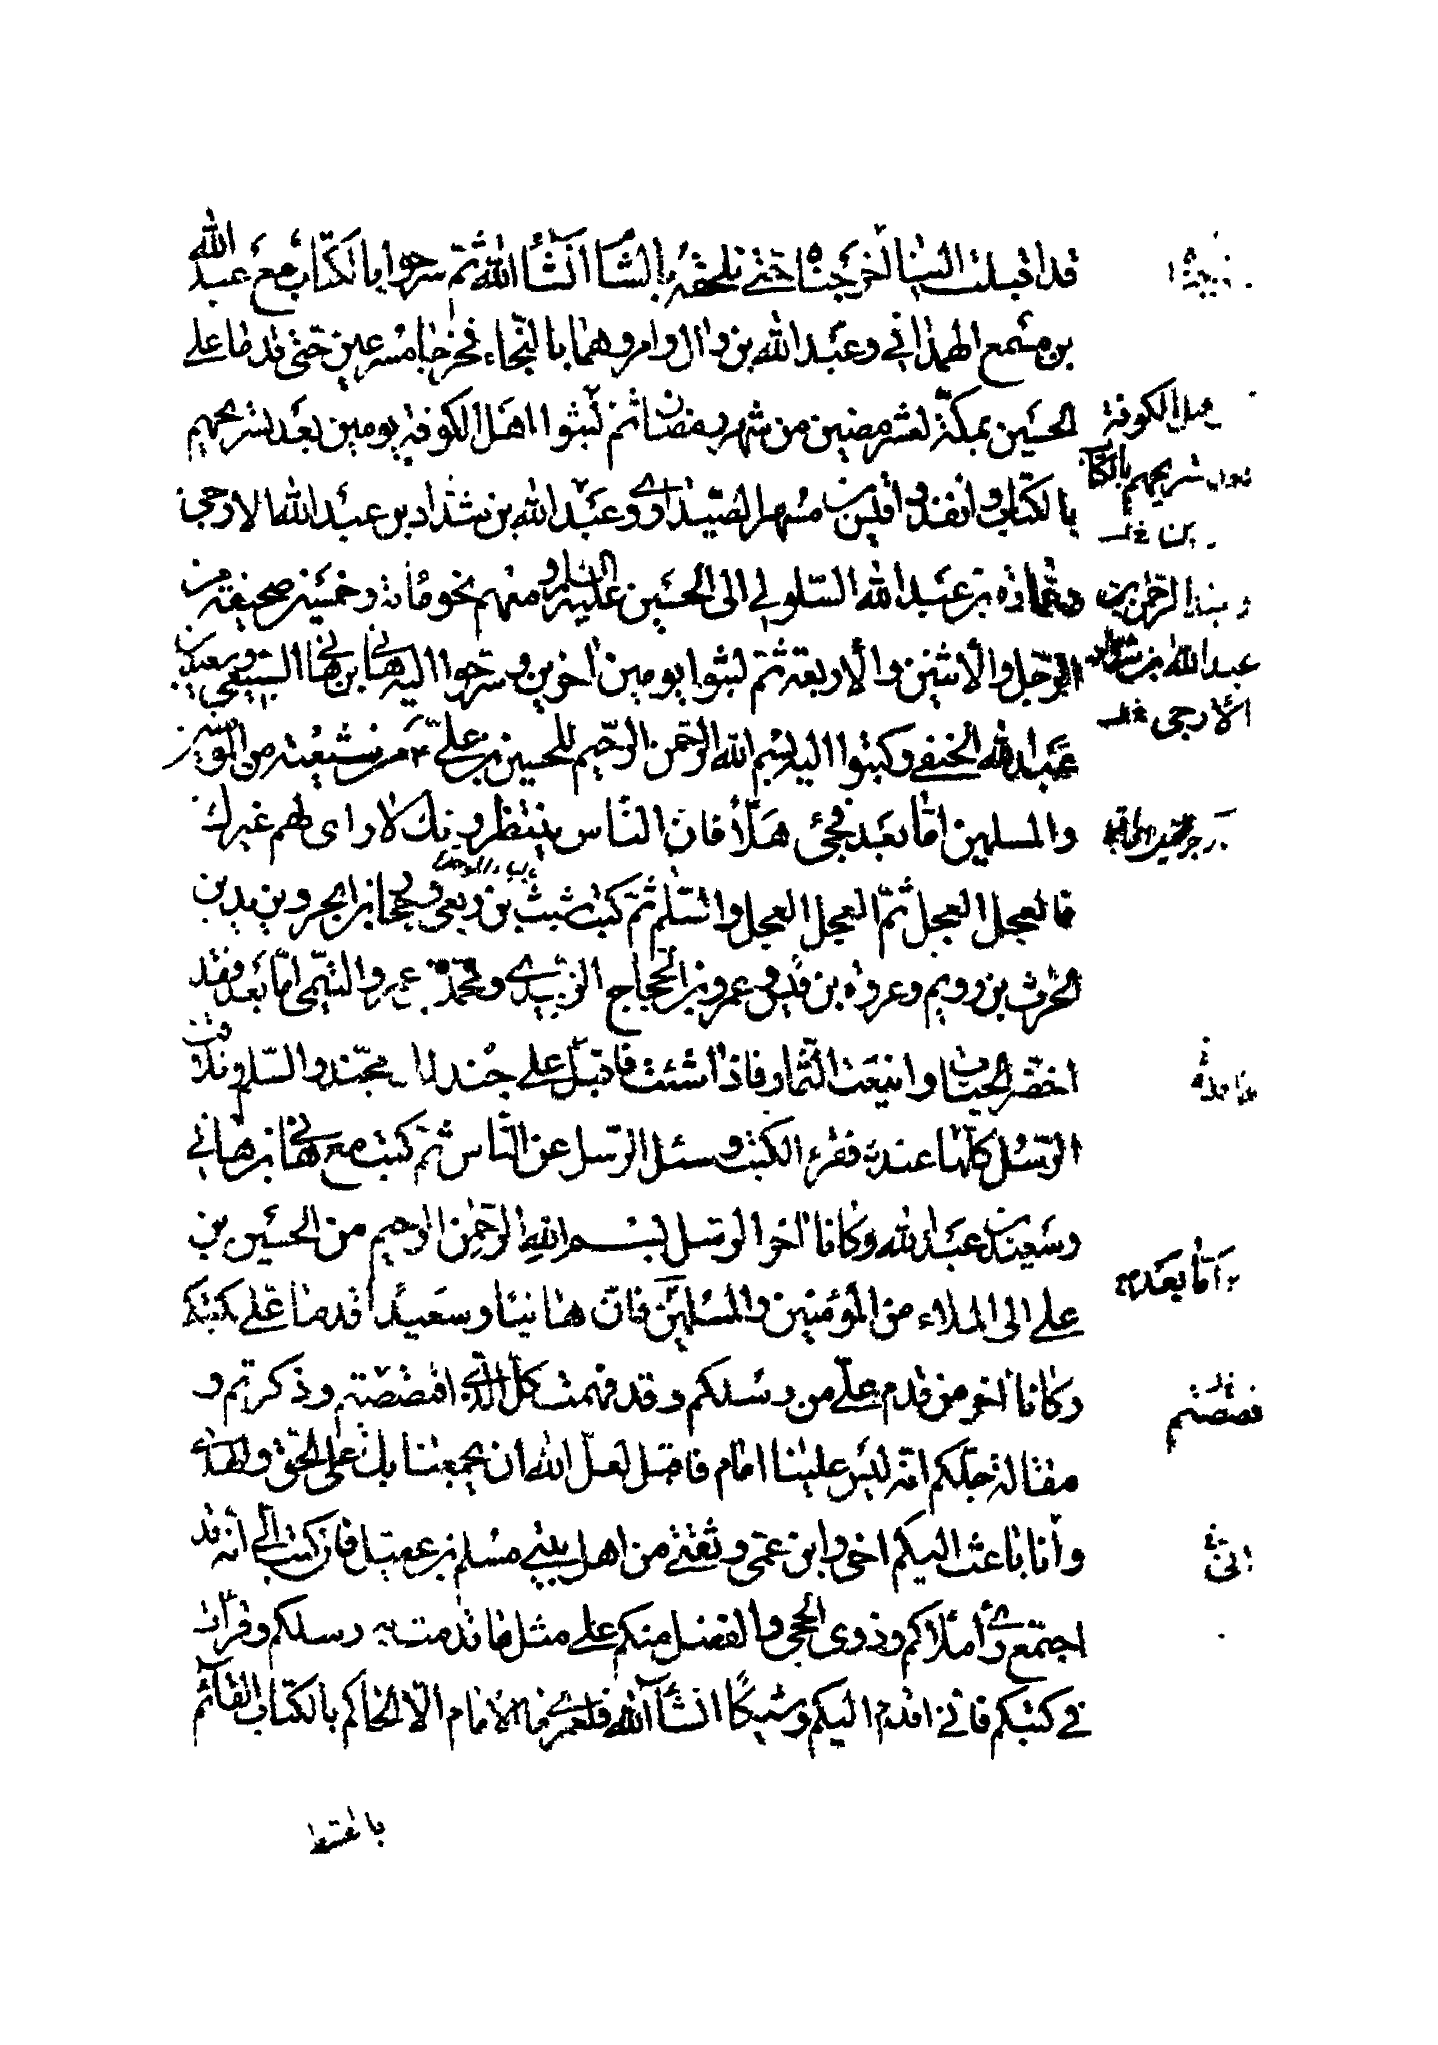 قد اقبلت الينا اخرجناه حتى نلحقه بالشام انشاء الله ثم سرحوا بالكتاب مع عبد الله
بن مسمع الهمداني و عبد الله بن وال وامروهما بالنجاء فخرجا مسرعين حتى قدما على
الحسين بمكة لعشر مضين من شهر رمضان ثم لبثوا اهل الكوفة يومين بعد تسريحهم
بالكتاب وانفذوا قيس بن مسهر الصيداوي و عبد الله بن شداد بن عبد الله الارحبي
وعمارة بن عبد الله السلولي الى الحسين عليه السلام ومنهم نحو مائة وخمسين صحيفة من
الرجل والاثنين والاربعة ثم لبثوا يومين اخرين و سرحوا اليه هاني بن هاني السبيعي وسعيد بن
عبد الله الحنفي وكتبوا اليه بسم الله الرحمن الرحيم للحسين بن علي من شيعته من المؤمنين
والمسلمين اما بعد فحي هلا فان الناس ينتظرونك لا راى لهم غيرك
فالعجل العجل ثم العجل العجل والسلم ثم كتب شبث بن ربعي و حجار بن ابجر و يزيد بن
الحرث بن رويم وعروة بن قيس و عمرو بن الحجاج الزبيدي و محمد بن عمرو التيمي اما بعد فقد
اخضر الجناب و اينعت الثمار فاذا شئت فاقبل على جند لك مجند والسلم وتلاقت
الرسل كلها عنده فقرء الكتب و سئل الرسل عن الناس ثم كتب مع هاني بن هاني
وسعيد بن عبد الله وكانا اخر الرسل بسم الله الرحمن الرحيم من الحسين بن
علي الى الملاء من المؤمنين والمسلمين فان هانيئا وسعيدا قدما علي بكتبكم
وكانا اخر من قدم علي من رسلكم و قد فهمت كل الذي اقتصصتم و ذكرتم و
مقالة جلكم انه ليس علينا امام فاقبل لعل الله ان يجمعنا بك على الحق والهدى
وانا باعث اليكم اخي وابن عمي و ثقتي من اهل بيتي مسلم بن عقيل فان كتب الي انه قد
اجتمع راي ملاكم وذوي الحجى والفضل منكم على مثل ما قدمت به رسلكم وقرات
في كتبكم فاني اقدم اليكم وشيكا انشاء الله فلعمري ما الامام الا الحاكم بالكتاب القائم
اهل الكوفة
تسريحهم بالكتاب
عبد الرحمن بن
عبد الله بن شداد
الارحبي
اما بعد
اني
بالقسط